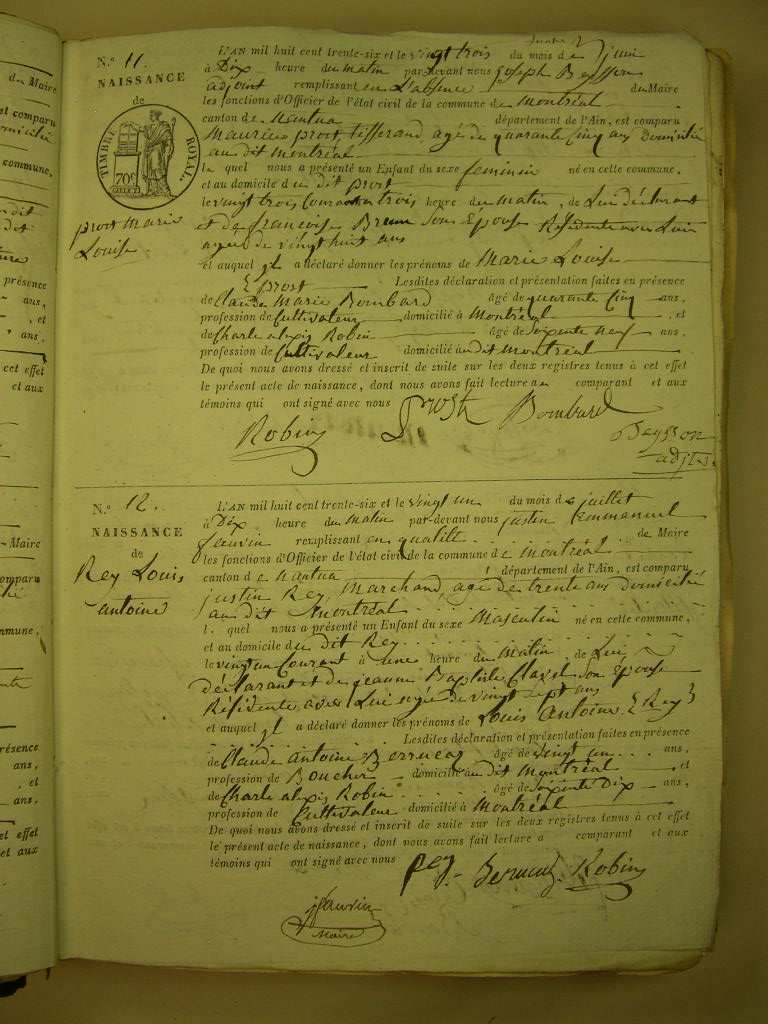 du Maire
st comparu
commune,
présence
ans,
et
ans,
cet effet
et aux
N.° 11.
NAISSANCE
de
TIMBRE ROYAL
70c
prost Marie
Louise
L'AN mil huit cent trente-six et le vingt trois du mois de juin
à Dix heure du matin par-devant nous Joseph Beysson
adjoint remplissant en L'absence du Maire
les fonctions d'Officier de l'état civil de la commune de Montréal
canton de Nantua département de l'Ain, est comparu
Maurice prost tisserand, agé de quarante Cinq ans Domicilié
au dit Montréal
le quel nous a présenté un Enfant du sexe feminin né en cette commune,
et au domicile du dit prost
le vingt trois Courant à trois heure du matin, de Lui déclarant
et de francoise Brunn son Epouse Résidente avec Lui
agee de vingt huit ans
et auquel il a déclaré donner les prénoms de Marie Louise
{ Prost Lesdites déclaration et présentation faites en présence
de Claude Marie Bombard âgé de quarante Cinq ans,
profession de Cultivateur domicilié à Montréal , et
de Charle alexis Robin âgé de soixente neuf ans,
profession de Cultivateur domicilié au dit Montréal
De quoi nous avons dressé et inscrit de suite sur les deux registres tenus à cet effet
le présent acte de naissance, dont nous avons fait lecture au comparant et aux
témoins qui ont signé avec nous
Prost Bombard
Robin Beysson
adjt
N.° 12.
NAISSANCE
de
Rey Louis
antoine
L'AN mil huit cent trente-six et le vingt un du mois de juillet
à Dix heure du Matin par-devant nous justin Emmanuel
Jauvrin remplissant en qualité de Maire
les fonctions d'Officier de l'état civil de la commune de Montréal
canton de Nantua département de l'Ain, est comparu
justin Rey, Marchand, agé de trente ans domicilié
au dit Montréal
l. quel nous a présenté un Enfant du sexe Masculin né en cette commune,
et au domicile du dit Rey
le vingt un Courant à une heure du Matin, de Lui
déclarant et de jeanne Baptiste Clavel son Epouse
Résidente avec Lui agée de vingt sept ans
et auquel il a déclaré donner les prénoms de Louis Antoine { Rey }
Lesdites déclaration et présentation faites en présence
de Claude Antoine âgé de vingt un ans,
profession de Boucher domicilié au dit Montréal , et
de Charle alexis Robin âgé de soixente Dix ans,
profession de Cultivateur domicilié à Montréal
De quoi nous avons dressé et inscrit de suite sur les deux registres tenus à cet effet
le présent acte de naissance, dont nous avons fait lecture a comparant et aux
témoins qui ont signé avec nous
Rey Robin
Maire